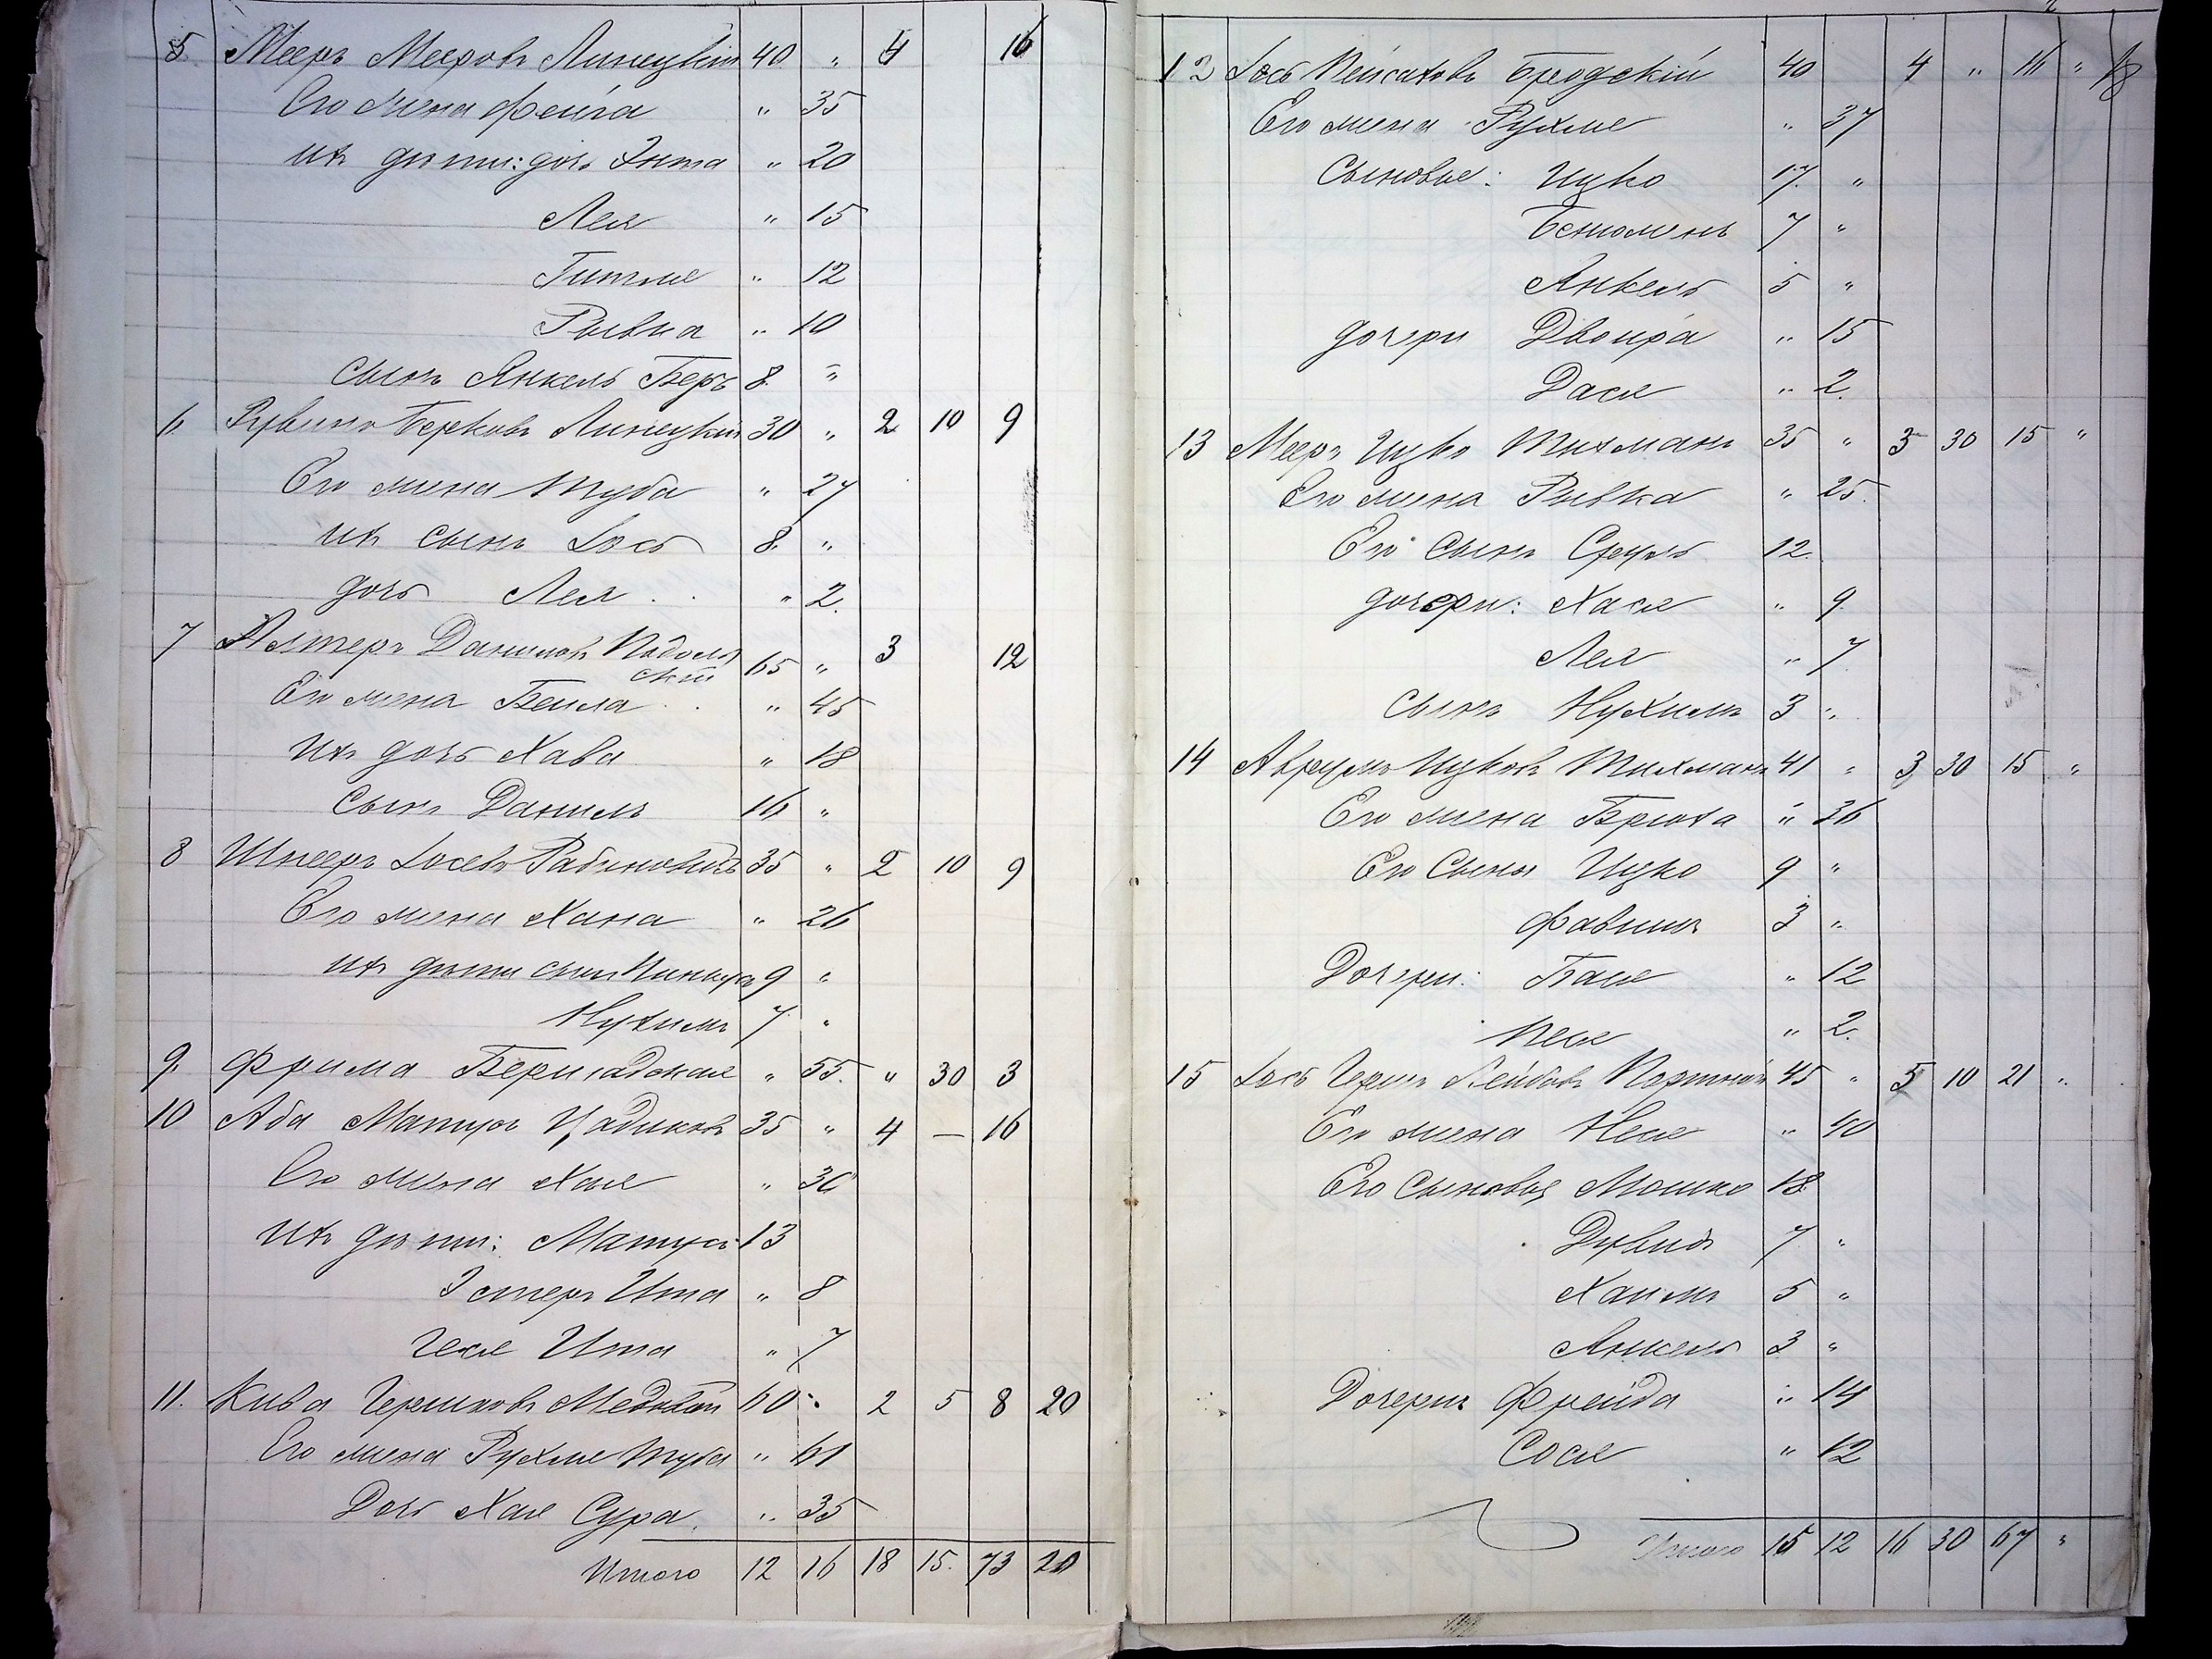 5. Мееръ Мееровъ Линецкий 40 " 4 16
Его жена Фейга " 35
ихъ дѣти: дочь Энта " 20
Лея " 15
Гитля " 12
Рывка " 10
сынъ Янкель Беръ 8. "
6. Рувинъ Берковъ Линецкий 30 " 2 10 9
Его жена Туба " 27
ихъ сынъ Iось 8. "
дочь Лея " 2.
7 Алтеръ Даниловъ Подоль
скiй 65 " 3 12
Его жена Беила " 45
ихъ дочь Хава " 18
Сынъ Данилъ 16 "
8 Шнееръ Iосевъ Рабиновичъ 35 " 2 10 9
Его жена Хана " 26
ихъ дѣти сынъ 9 "
Нухимъ 7 "
9. Фрима Бершадская " 55. " 30 3
10 Аба Матусъ Цадиковъ 35 " 4 — 16
Его жена Хая " 30
ихъ дѣти: Матусъ 13
Эстеръ Ита " 8
Геся Ита " 7
11. Кива Гершковъ 60 " 2 5 8 20
Его жена Рухля Туба " 61
Дочь Хая Сура. " 35
Итого 12 16 18 15. 73 20
2
12 Iось Пейсаховъ Бродскiй 40 4 " 16 "
Его жена Рухля " 37
Сыновья: Ицко 17. "
Бенюменъ 7 "
Янкель 5 "
дочери Двойра " 15
Дася " 2.
13 Мееръ Ицко Тихманъ 35 " 3 30 15 "
Его жена Рывка " 25.
Его Сынъ Сруль 12.
дочери: Хася " 9.
Лея " 7.
Сынъ Нухимъ 3 "
14 Аврумъ Ицковъ Тихманъ 41 " 3 30 15 "
Его жена Бруха " 36
Его Сыны Ицко 9 "
Фавишъ 3 "
Дочери: Бася " 12
Песя " 2.
15 Iось Гершъ Лейбовъ Портной 45 " 5 10 21 "
Его жена Неся " 40
Его Сыновья Мошко 18
Дувидъ 7 "
Хаимъ 5 "
Янкель 3 "
Дочери: Фрейда " 14
Сося " 12
Итого 15 12 16 30 67 "